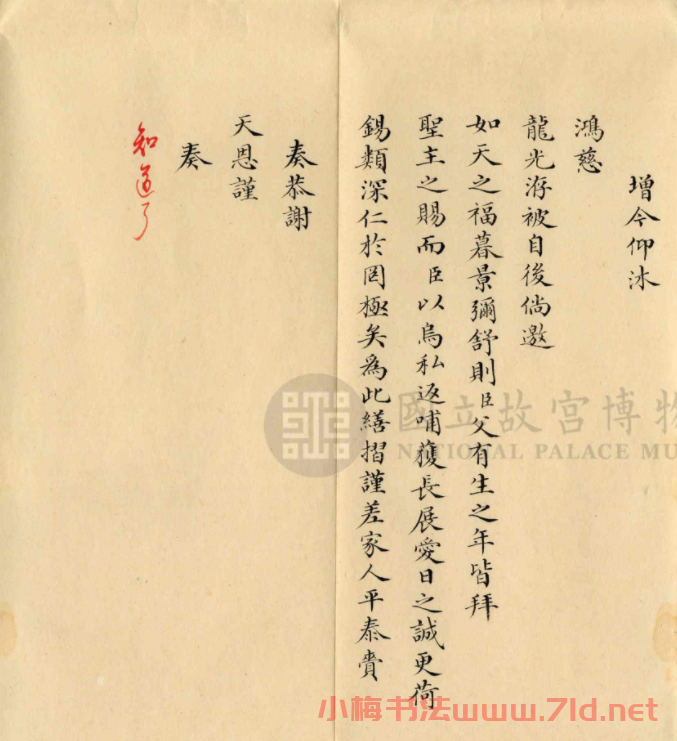 增今仰沐
鴻慈
龍光洊被自後倘邀
如天之福暮景彌舒則臣父有生之年皆拜
聖主之賜而臣以烏私返哺獲長展愛日之誠更荷
錫類深仁於罔極矣為此繕摺謹差家人平泰賫
奏恭謝
天恩謹
奏
知道了
國立故宮博物
NATIONAL PALACE MU
小梅书法www.7ld.net